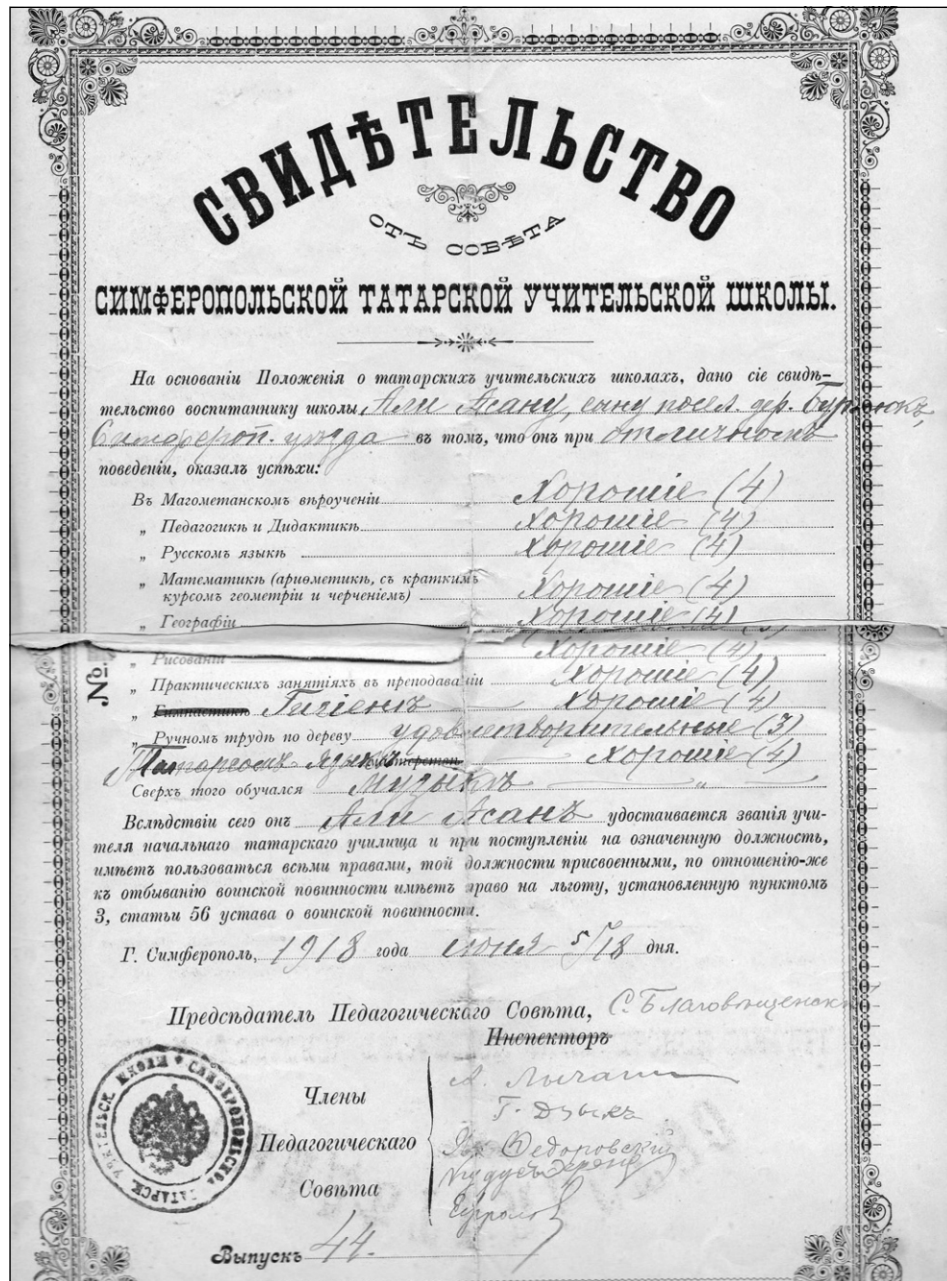 СВИДѢТЕЛЬСТВО
ОТЪ СОВѢТА
СИМФЕРОПОЛЬСКОЙ ТАТАРСКОЙ УЧИТЕЛЬСКОЙ ШКОЛЫ.
На основаніи Положенія о татарскихъ учительскихъ школахъ, дано сіе свидѣ-
тельство воспитаннику школы Али Асану, сыну посел. дер. Бурлюкъ,
Симфероп. уѣзда въ томъ, что онъ при отличномъ
поведеніи, оказалъ успѣхи:
Въ Магометанскомъ вѣроученіи Хорошіе (4)
„ Педагогикѣ и Дидактикѣ Хорошіе (4)
„ Русскомъ языкѣ Хорошіе (4)
„ Математикѣ (ариѳметикѣ, съ краткимъ
курсомъ геометріи и черченіемъ) Хорошіе (4)
„ Географіи Хорошіе (4)
„ Рисованіи Хорошіе (4)
№
„ Практическихъ занятіяхъ въ преподаваніи Хорошіе (4)
„ Гимнастикѣ Гигіенѣ Хорошіе (4)
„ Ручномъ трудѣ по дереву удовлетворительные (3)
Татарскомъ языкѣ Хорошіе (4)
Сверхъ того обучался Музыкѣ „
Вслѣдствіи сего онъ Али Асанъ удостаивается званія учи-
теля начальнаго татарскаго училища и при поступленіи на означенную должность,
имѣетъ пользоваться всѣми правами, той должности присвоенными, по отношенію-же
къ отбыванію воинской повинности имѣетъ право на льготу, установленную пунктомъ
3, статьи 56 устава о воинской повинности.
Г. Симферополь, 1918 года іюня 5/18 дня.
Предсѣдатель Педагогическаго Совѣта, С. Благовѣщенскій
Инспекторъ
Члены
Педагогическаго
Совѣта
Г. Дзыкъ
Федоровскій
СИМФЕРОПОЛЬСКОЙ ТАТАРСК. УЧИТЕЛЬСК. ШКОЛЫ
Выпускъ 44.